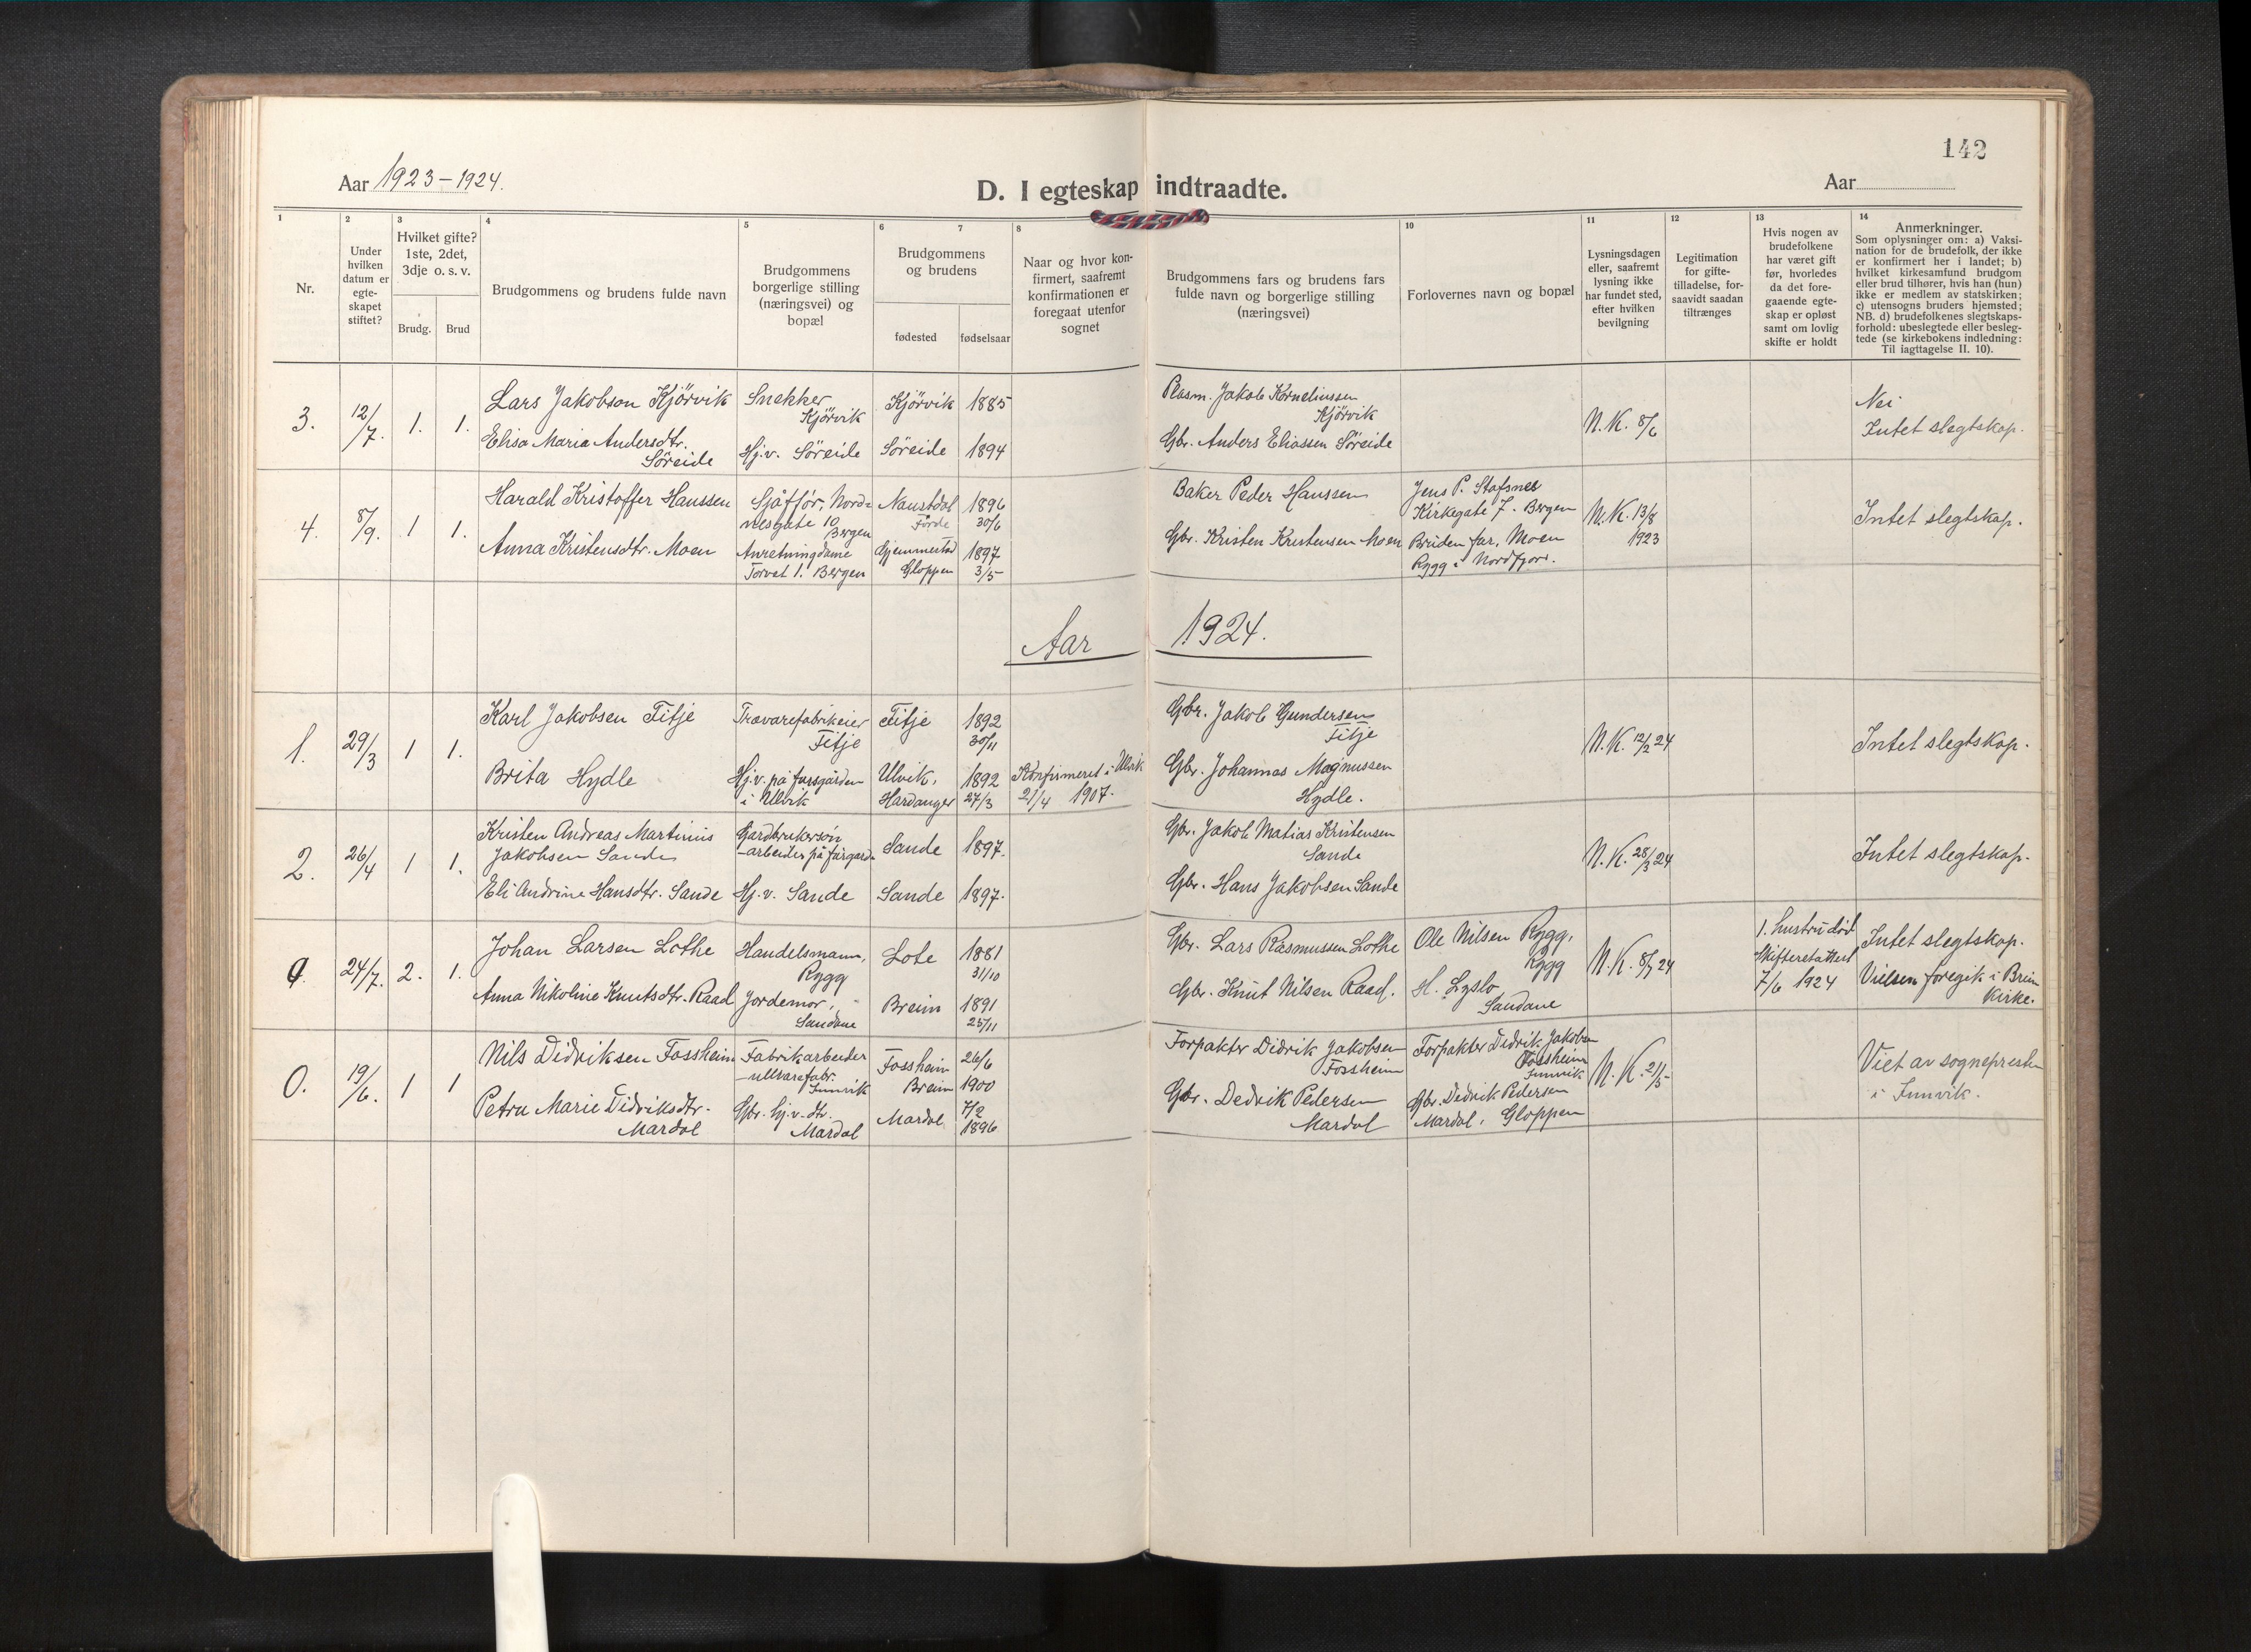 142
Aar 1923-1924.
D. I egteskap indtraadte.
Aar
1
2
3
4
5
6
7
8
10
11
12
13
14
Nr.
Under
hvilken
datum er
egte-
skapet
stiftet?
Hvilket gifte?
1ste, 2det,
3dje o. s. v.
Brudg.
Brud
Brudgommens og brudens fulde navn
Brudgommens
borgerlige stilling
(næringsvei) og
bopæl
Brudgommens
og brudens
fødested
fødselsaar
Naar og hvor kon-
firmert, saafremt
konfirmationen er
foregaat utenfor
sognet
Brudgommens fars og brudens fars
fulde navn og borgerlige stilling
(næringsvei)
Forlovernes navn og bopæl
Lysningsdagen
eller, saafremt
lysning ikke
har fundet sted,
efter hvilken
bevilgning
Legitimation
for gifte-
tilladelse, for-
saavidt saadan
tiltrænges
Hvis nogen av
brudefolkene
har været gift
før, hvorledes
da det fore-
gaaende egte-
skap er opløst
samt om lovlig
skifte er holdt
Anmerkninger.
Som oplysninger om: a) Vaksi-
nation for de brudefolk, der ikke
er konfirmert her i landet; b)
hvilket kirkesamfund brudgom
eller brud tilhører, hvis han (hun)
ikke er medlem av statskirken;
c) utensogns bruders hjemsted;
NB. d) brudefolkenes slegtskaps-
forhold: ubeslegtede eller besleg-
tede (se kirkebokens indledning:
Til iagttagelse II. 10).
3.
12/7.
1.
1.
Lars Jakobson Kjörvik
Elisa Maria Andersdtr.
Söreide
Snekker
Kjörvik
Hj.v. Söreide
Kjörvik
Söreide
1885
1894
Plassm. Jakob Korneliussen
Kjörvik
Gbr. Anders Eliassen Söreide
N.K. 8/6
Nei
Intet slegtskap.
4.
8/9.
1
1.
Harald Kristoffer Hanssen
Anna Kristensdtr. Moen
Sjåffør, Nord=
nesgate 10
Bergen
Anretningdame
Torvet 1. Bergen
Naustdal
Förde
Gjemmestad
Gloppen
1896
30/6
1897
3/5
Baker Peder Hanssen
Gbr. Kristen Kristensen Moen
Jens P. Stafsnes
Kirkegate 7. Bergen
Bruden far, Moen
Rygg i Nordfjord.
N.K. 13/8
1923
Intet slegtskap.
Aar 1924.
1.
29/3
1
1.
Karl Jakobsen Fitje
Brita Hydle
Trævarefabrikeier
Fitje
Hj.v. på farsgården
i Ulvik
Fitje
Ulvik,
Hardanger
1892
30/11
1892
27/3
Konfirmeret i Ulvik
21/4 1907.
Gbr. Jakob Gundersen
Fitje
Gbr. Johannes Magnussen
Hydle.
N.K. 12/2 24
Intet slegtskap.
2.
26/4
1
1.
Kristen Andreas Martinus
Jakobsen Sande
Eli Andrine Hansdtr. Sande
Gardbrukersön
-arbeider på farsgard-
Hj.v. Sande
Sande
Sande
1897.
1897.
Gbr. Jakob Matias Kristensen
Sande
Gbr. Hans Jakobsen Sande
N.K. 28/3 24
Intet slegtskap.
0.
24/7.
2.
1.
Johan Larsen Lothe
Anna Nikoline Knutsdtr. Raad
Handelsmann,
Rygg
Jordemor,
Sandane
Lote
Breim
1881
31/10
1891
25/11
Gbr. Lars Rasmussen Lothe
Gbr. Knut Nilsen Raad.
Ole Nilsen Rygg,
Rygg
H. Lyslo
Sandane
N.K. 8/7 24
1. hustru död
Skifteretattest
7/6 1924
Intet slegtskap.
Vielsen foregik i Breim
kirke.
0.
19/6.
1
1
Nils Didriksen Fossheim
Petra Marie Didriksdtr.
Mardal
Fabrikarbeider
-ullvarefabr.
Innvik
Gbr. hj.v. dtr.
Mardal
Fossheim
Breim
Mardal
26/6
1900
7/2
1896
Forpakter Didrik Jakobsen
Fossheim
Gbr. Dedrik Pedersen
Mardal
Forpakter Didrik Jakobsen
Fossheim
Innvik
Gbr. Didrik Pedersen
Mardal, Gloppen
N.K. 21/5
Viet av sognepresten
i Innvik.